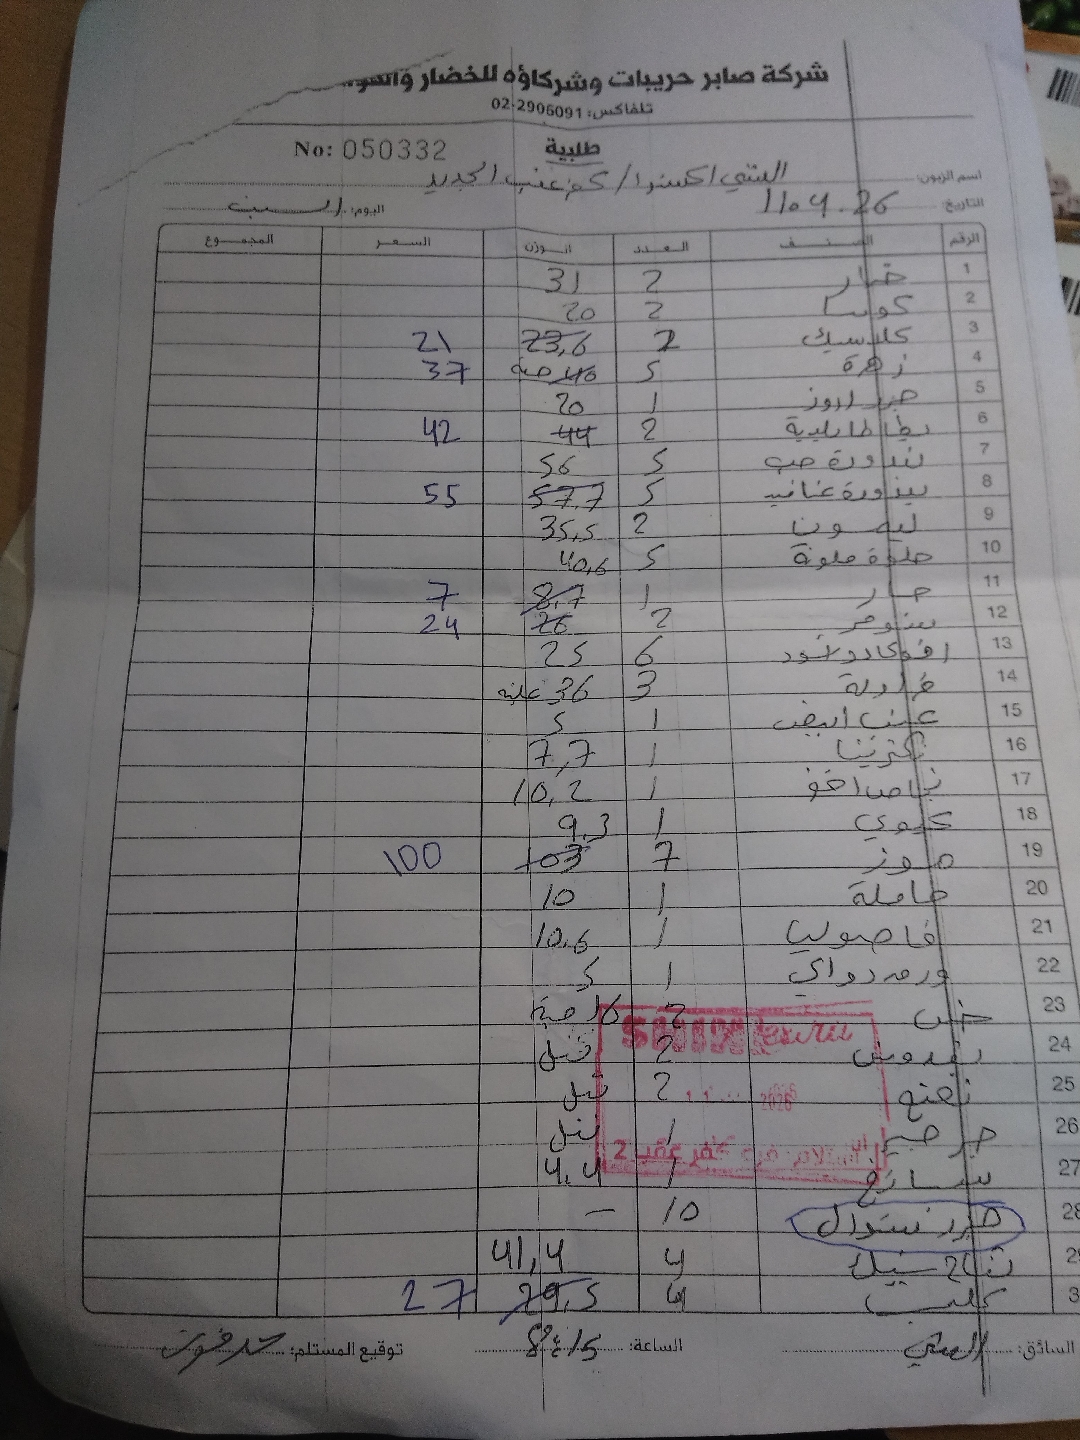 شركة صابر حريبات وشركاؤه للخضار والفواكه
تلفاكس: 02-2906091
No: 050332
طلبية
اسم الزبون: السني اكسترا / كفر عقب الجديد
التاريخ: 11.4.26 اليوم: السبت
الرقم الصنف العدد الوزن السعر المجموع
1 خيار 2 31
2 كوسا 2 20
3 كلاسيك 2 23,6 21
4 زهرة 5 46 حبة 37
5 1 20
6 بطاطا بلدية 2 44 42
7 بندورة حب 5 56
8 بندورة عناقيد 5 57.7 55
9 ليمون 2 35,5
10 حلوة ملونة 5 40,6
11 حار 1 8,7 7
12 2 26 24
13 افوكادو 6 25
14 فراولة 3 36 علبة
15 عنب ابيض 1 5
16 نكترينا 1 7,7
17 1 10,2
18 كيوي 1 9,3
19 موز 7 103 100
20 1 10
21 فاصوليا 1 10,6
22 ورق دوالي 1 5
23 خس 2 16 حبة
24 بقدونس 2
25 نعنع 2
26 جرجير 1
27 سبانخ 1 4,4
28 10 —
29 4 41,4
30 4 29,5 27
2026
استلام فرع كفر عقب 2
السائق: السني الساعة: 8:15 توقيع المستلم: